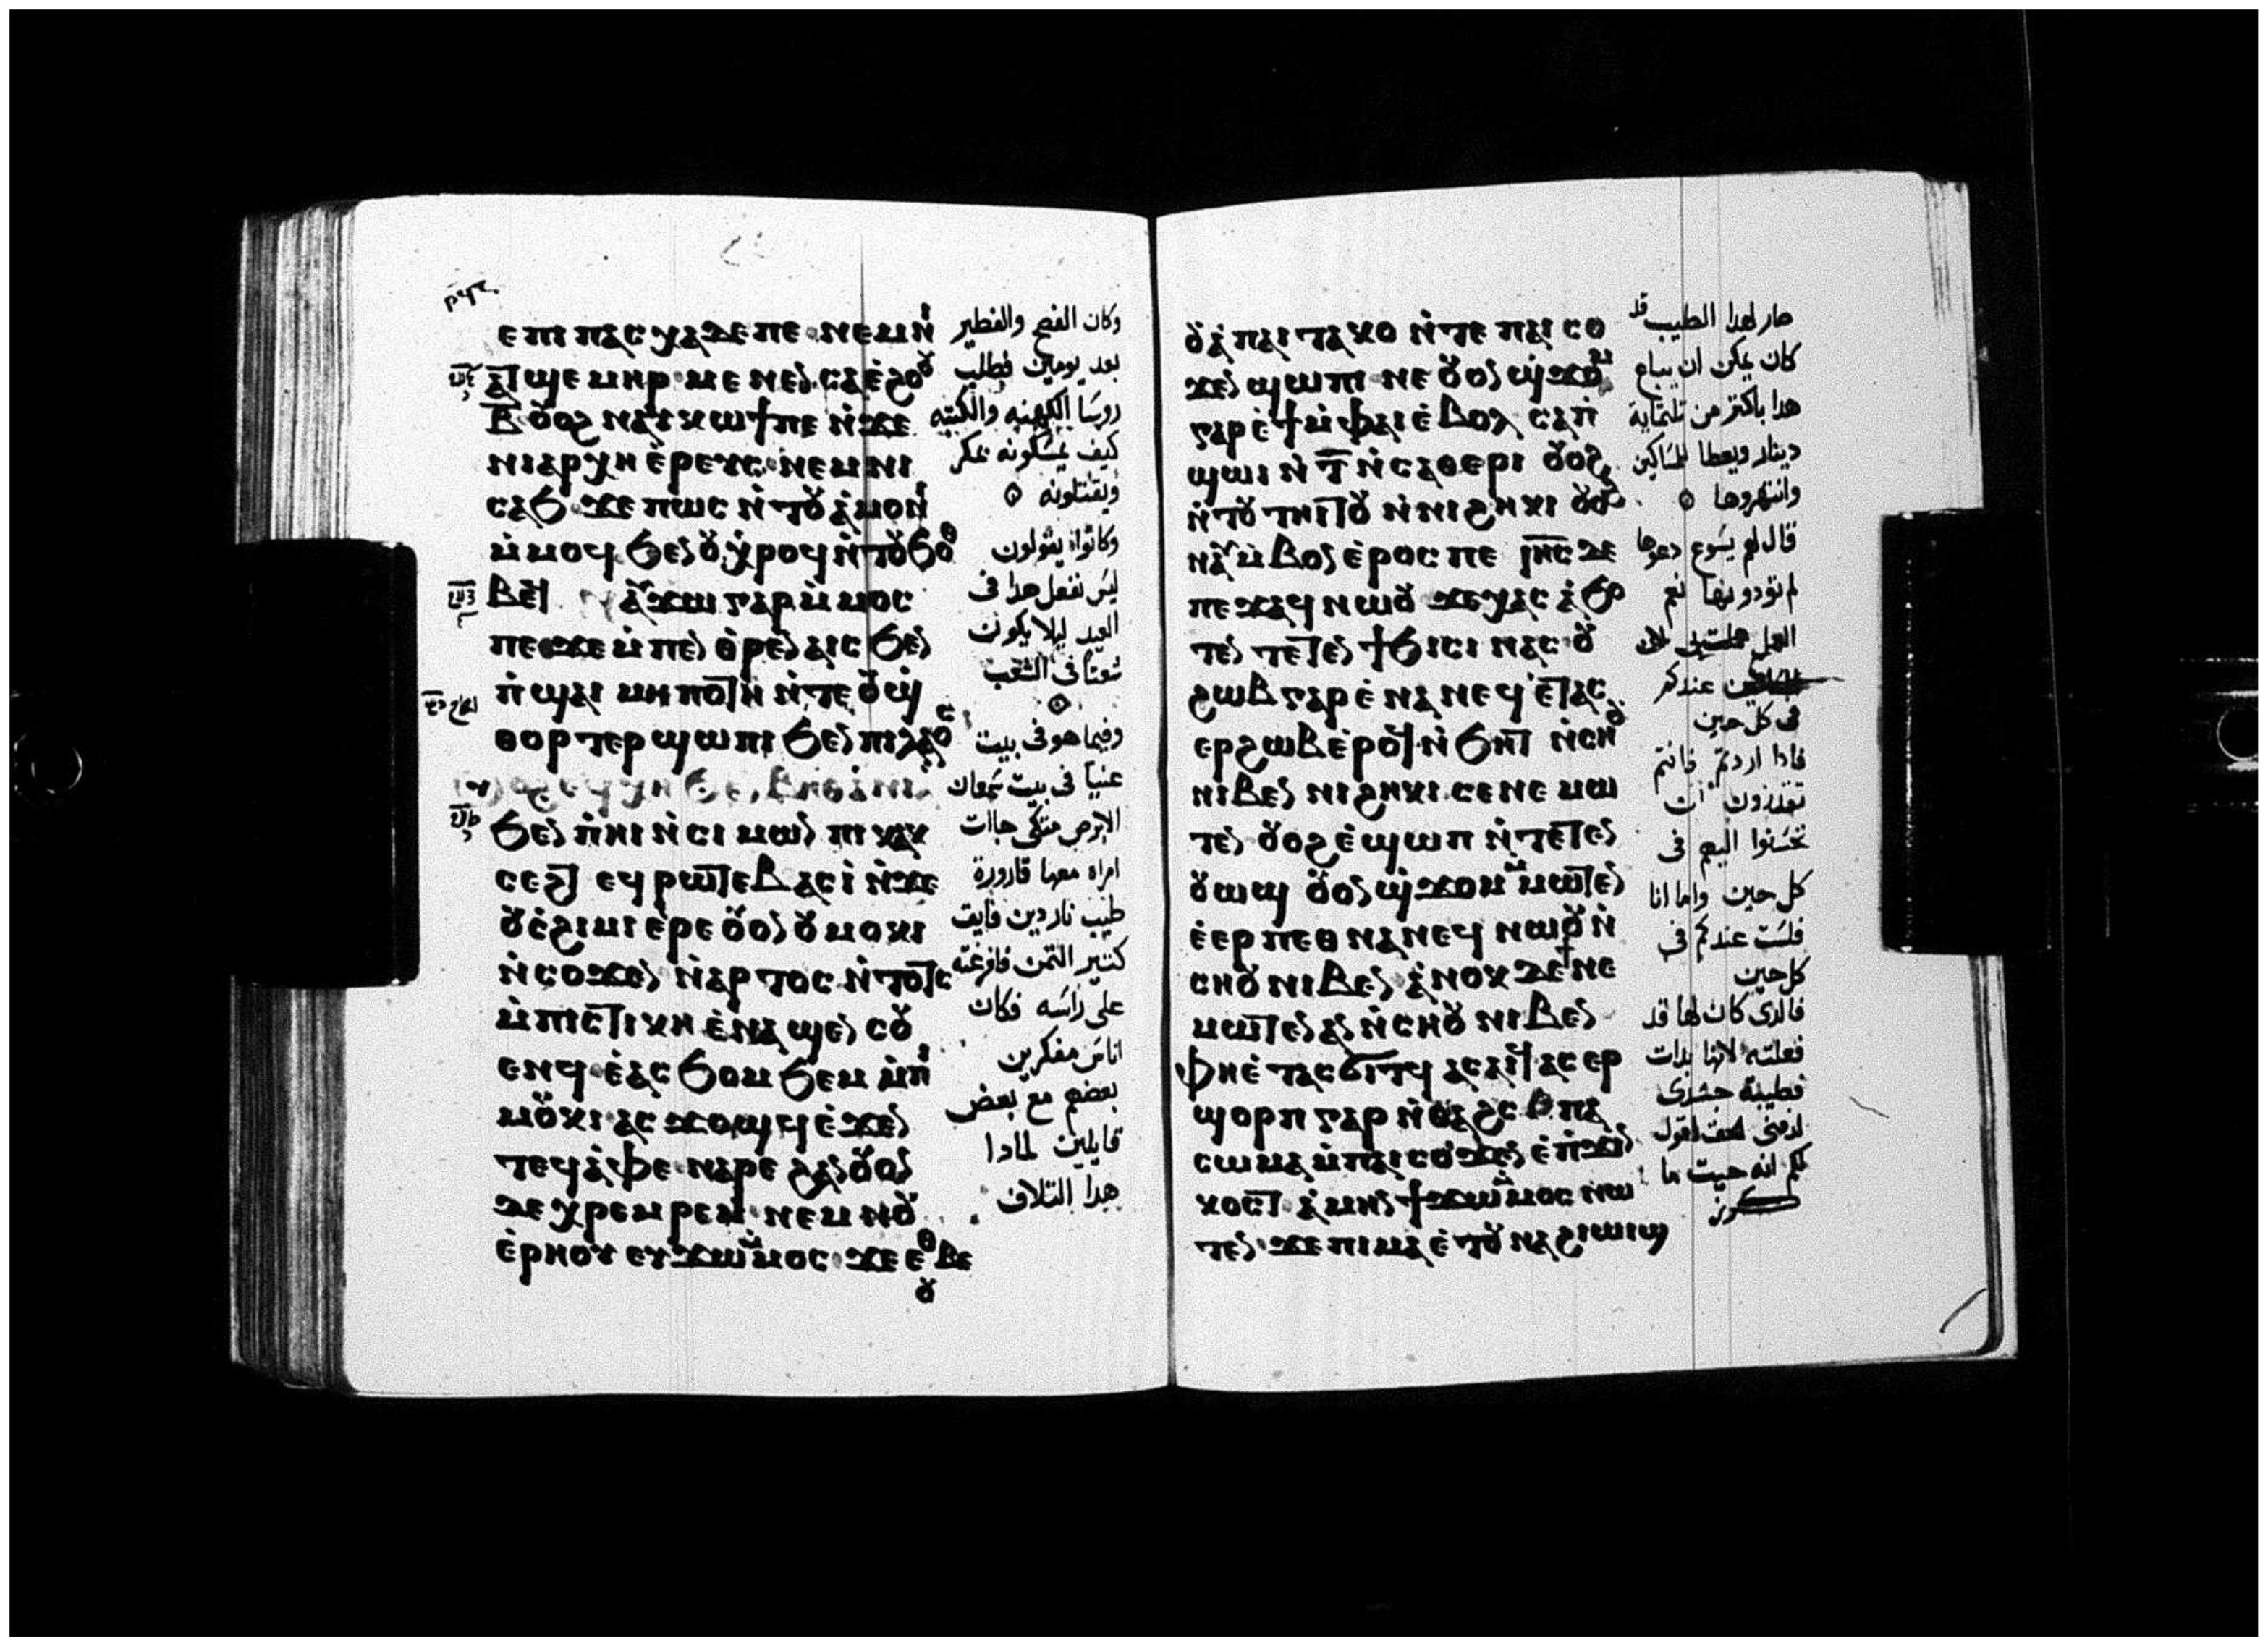 ⲉⲡⲓ ⲡⲁⲥⲭⲁ ⲇⲉ ⲡⲉ ⲛⲉⲙ ⲛⲓ
ⲃ̅ ⲟⲩⲟϩ ⲛⲁⲩⲕⲱϯ ⲡⲉ ⲛ̇ϫⲉ
ⲛⲓⲁⲣⲭⲏⲉ̇ⲣⲉⲩⲥ ⲛⲉⲙ ⲛⲓ
ⲥⲁϧ ϫⲉ ⲡⲱⲥ ⲛ̇ⲧⲟⲩⲁ̇ⲙⲟⲛⲓ
ⲙ̇ⲙⲟϥ ϧⲉⲛ ⲟⲩⲭ̇ⲣⲟϥ ⲛ̇ⲧⲟⲩϧⲟⲑ
ⲃⲉϥ ⲛⲁⲩϫⲱ ⲅⲁⲣ ⲙ̇ⲙⲟⲥ
ⲡⲉ ϫⲉ ⲙ̇ⲡⲉⲛⲑⲣⲉⲛⲁⲓⲥ ϧⲉⲛ
ⲡ̇ϣⲁⲓ ⲙⲏⲡⲟⲧⲉ ⲛ̇ⲧⲉ ⲟⲩϣ̇
ⲑⲟⲣⲧⲉⲣ ϣⲱⲡⲓ ϧⲉⲛ ⲡⲓⲗⲁⲟⲥ
ϧⲉⲛ ⲡ̇ⲏⲓ ⲛ̇ⲥⲓⲙⲱⲛ ⲡⲓⲕⲁⲕ
ⲥⲉϩⲧ ⲉϥⲣⲱⲧⲉⲃ ⲁⲥⲓ̇ ⲛ̇ϫⲉ
ⲟⲩⲥ̇ϩⲓⲙⲓ ⲉ̇ⲣⲉ ⲟⲩⲟⲛ ⲟⲩⲙⲟⲕⲓ
ⲛ̇ⲥⲟϫⲉⲛ ⲛ̇ⲁⲣⲧⲟⲥ ⲛ̇ⲧⲟⲧⲥ
ⲙ̇ⲡⲓⲥⲧⲓⲕⲏ ⲉ̇ⲛⲁϣⲉⲛⲥⲟⲩ
ⲉⲛϥ ⲉ̇ⲁⲥϧⲟⲙϧⲉⲙ ⲙ̇ⲡⲓ
ⲙⲟⲩⲕⲓ ⲁⲥϫⲟϣϥ ⲉ̇ϫⲉⲛ
ⲧⲉϥⲁ̇ⲫⲉ ⲛⲁⲣⲉ ϩⲁⲛⲟⲩⲟⲛ
ⲇⲉ ⲭⲣⲉⲙⲣⲉⲙ ⲛⲉⲙ ⲛⲟⲩ
ⲉ̇ⲣⲏⲟⲩ ⲉⲩϫⲱ ⲙ̇ⲙⲟⲥ ϫⲉ ⲉⲑⲃⲉ
ⲟⲩ
وكان الفصح والفطير
بعد يومين فطلب
روسا الكهنه والكتبه
كيف يمسكونه بمكر
ويقتلونه
وكانوا يقولون
ليس نفعل هدا فى
العيد ليلا يكون
شعتا فى الشعب
وفيما هو فى بيت
عنيا فى بيت سمعان
الابرص متكى جاات
امراه معها قارورة
طيب ناردين فايق
كتير التمن فافرغته
على راسه فكان
اناس مفكرين
بعضهم مع بعض
قايلين لمادا
هدا التلاف
ⲟⲩⲁ̇ ⲡⲁⲓⲧⲁⲕⲟ ⲛ̇ⲧⲉ ⲡⲁⲓⲥⲟ
ϫⲉⲛ ϣⲱⲡⲓ ⲛⲉ ⲟⲩⲟⲛ ϣ̇ϫⲟⲙ
ⲅⲁⲣ ⲉ̇ϯ ⲙ̇ⲫⲁⲓ ⲉ̇ⲃⲟⲗ ⲥⲁⲡ̇
ϣⲱⲓ ⲛ̇ⲧ̅ ⲛ̇ⲥⲁⲑⲉⲣⲓ ⲟⲩⲟϩ
ⲛ̇ⲧⲟⲩⲧⲏⲓⲧⲟⲩ ⲛ̇ⲛⲓϩⲏⲕⲓ ⲟⲩⲟϩ
ⲛⲁⲩⲙ̇ⲃⲟⲛ ⲉ̇ⲣⲟⲥ ⲡⲉ ⲓⲏ̅ⲥ̅ ⲇⲉ
ⲡⲉϫⲁϥ ⲛⲱⲟⲩ ϫⲉ ⲭⲁⲥ ⲁ̇ϧⲟ
ⲧⲉⲛ ⲧⲉⲧⲉⲛϯϧⲓⲥⲓ ⲛⲁⲥ ⲟⲩ
ϩⲱⲃ ⲅⲁⲣ ⲉ̇ⲛⲁⲛⲉϥ ⲉ̇ⲧⲁⲥ
ⲉⲣϩⲱⲃ ⲉ̇ⲣⲟϥ ⲛ̇ϧⲏⲧ ⲛ̇ⲥⲏⲟⲩ
ⲛⲓⲃⲉⲛ ⲛⲓϩⲏⲕⲓ ⲥⲉⲛⲉⲙⲱ
ⲧⲉⲛ ⲟⲩⲟϩ ⲉ̇ϣⲱⲡ ⲛ̇ⲧⲉⲧⲉⲛ
ⲟⲩⲱϣ ⲟⲩⲟⲛ ϣ̇ϫⲟⲙ ⲙ̇ⲙⲱⲧⲉⲛ
ⲉ̇ⲉⲣⲡⲉⲑⲛⲁⲛⲉϥ ⲛⲱⲟⲩ ⲛ̇
ⲥⲏⲟⲩ ⲛⲓⲃⲉⲛ ⲁ̇ⲛⲟⲕ ⲇⲉ ϯⲛⲉ
ⲙⲱⲧⲉⲛ ⲁⲛ ⲛ̇ⲥⲏⲟⲩ ⲛⲓⲃⲉⲛ
ⲫⲏⲉ̇ⲧⲁⲥϭⲓⲧϥ ⲁⲥⲁⲓϥ ⲁⲥⲉⲣ
ϣⲟⲣⲡ ⲅⲁⲣ ⲛ̇ⲑⲁϩⲥ ⲡⲁ
ⲥⲱⲙⲁ ⲙ̇ⲡⲁⲓⲥⲟϫⲉⲛ ⲉ̇ⲡ̇ϫⲓⲛ
ⲕⲟⲥⲧ ⲁ̇ⲙⲏⲛ ϯϫⲱ ⲙ̇ⲙⲟⲥ ⲛⲱ
ⲧⲉⲛ ϫⲉ ⲡⲓⲙⲁ ⲉ̇ⲧⲟⲩⲛⲁϩⲓⲱⲓϣ
صار لهدا الطيب قد
كان يمكن ان يباع
هدا باكتر من تلتماية
دينار ويعطا للمساكين
وانتهروها
قال لهم يسوع دعوها
لم تودونها نعم
عندكم
فى كل حين
فادا اردتم فانتم
تقدرون ان
فى
كل حين واما انا
فلست عندكم فى
كل حين
فالدى كان لها قد
فعلته لانها بدات
فطيبة جسدى
لدفنى الحق اقول
لكم انه حيت ما